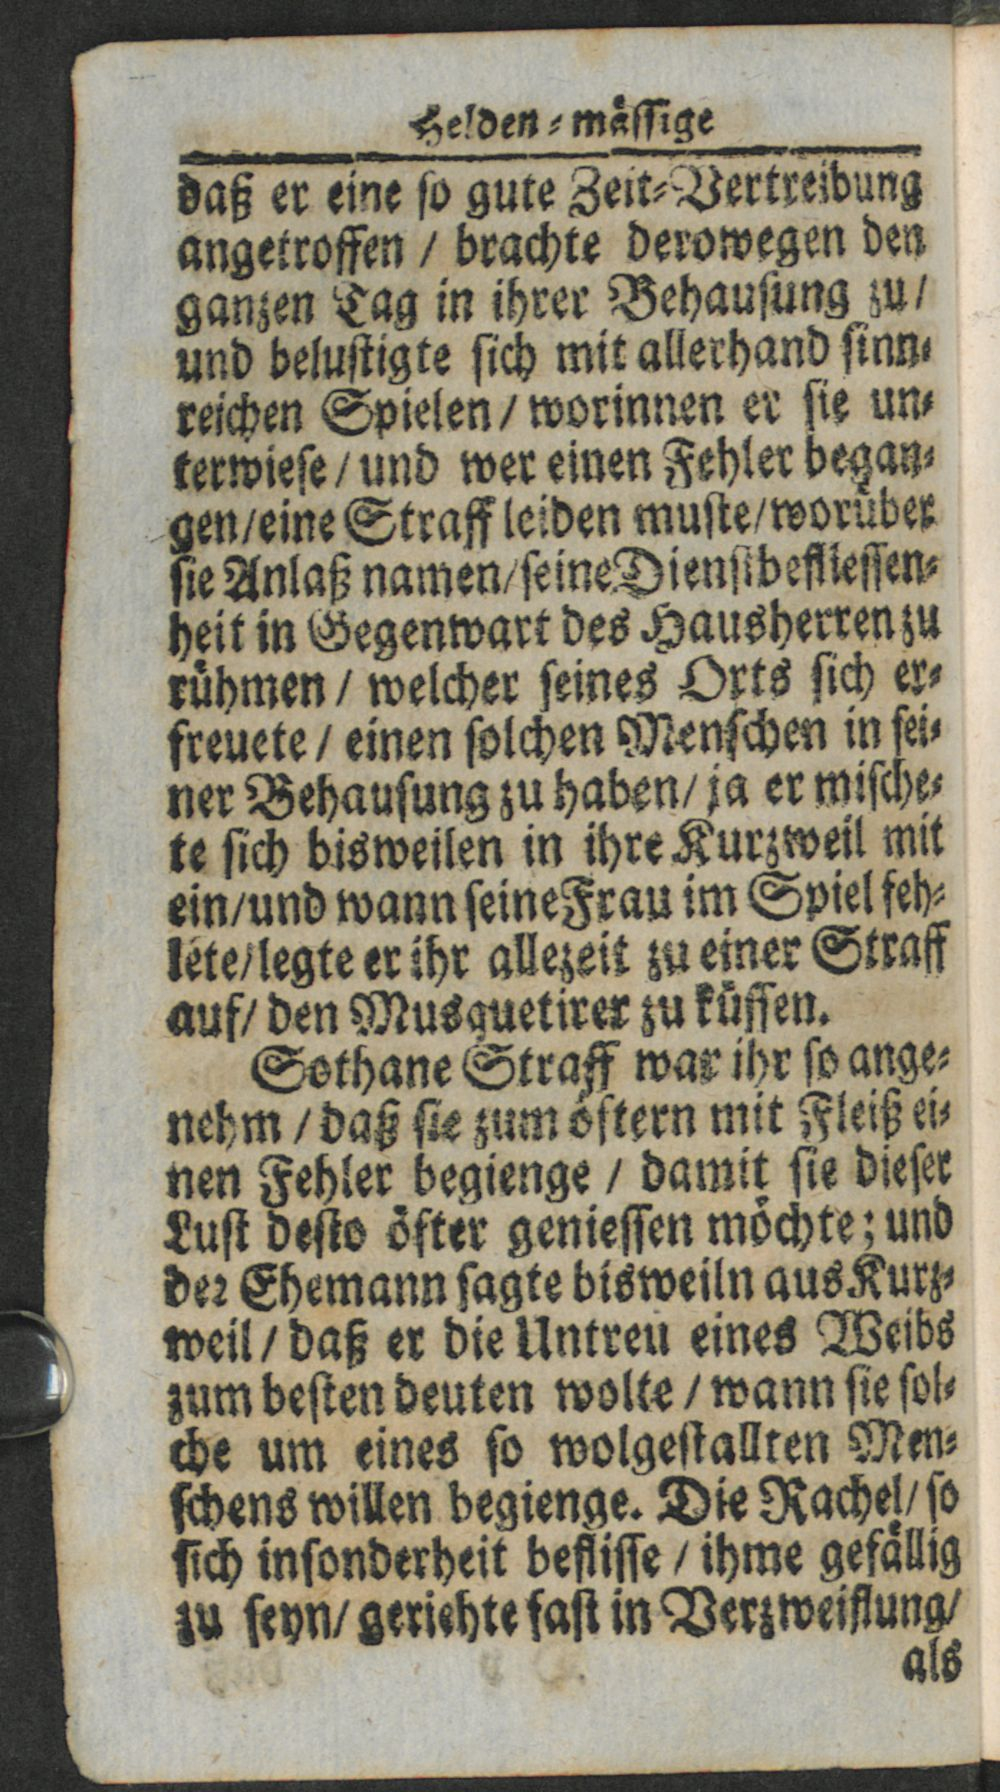 Helden-mässige
daß er eine so gute Zeit-Vertreibung
angetroffen / brachte derowegen den
ganzen Tag in ihrer Behausung zu /
und belustigte sich mit allerhand sinn-
reichen Spielen / worinnen er sie un-
terwiese / und wer einen Fehler began-
gen / eine Straff leiden muste / worüber
sie Anlaß namen / seine Dienstbefliessen-
heit in Gegenwart des Hausherren zu
rühmen / welcher seines Orts sich er-
freuete / einen solchen Menschen in sei-
ner Behausung zu haben / ja er mische-
te sich bisweilen in ihre Kurzweil mit
ein / und wann seine Frau im Spiel feh-
lete / legte er ihr allezeit zu einer Straff
auf / den Musquetirer zu küssen.
Sothane Straff war ihr so ange-
nehm / daß sie zum öftern mit Fleiß ei-
nen Fehler begienge / damit sie dieser
Lust desto öfter geniessen möchte; und
der Ehemann sagte bisweiln aus Kurz-
weil / daß er die Untreu eines Weibs
zum besten deuten wolte / wann sie sol-
che um eines so wolgestallten Men-
schens willen begienge. Die Rachel / so
sich insonderheit beflisse / ihme gefällig
zu seyn / geriehte fast in Verzweiflung /
als